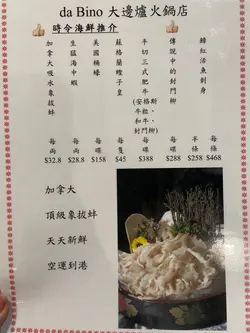 da Bino 大邊爐火鍋店
時令海鮮推介
紅活魚刺身
半條 $258
每條 $468
傳說中的封門柳
每碟 $288
手切三式肥牛
(安格斯
和牛、
封門柳)
每碟 $388
蘇格蘭蟶子皇
每隻 $45
美國桶蠔
每碟 $158
生猛海中蝦
每兩 $28.8
加拿大吸水象拔蚌
每兩 $32.8
加拿大
頂級象拔蚌
天天新鮮
空運到港